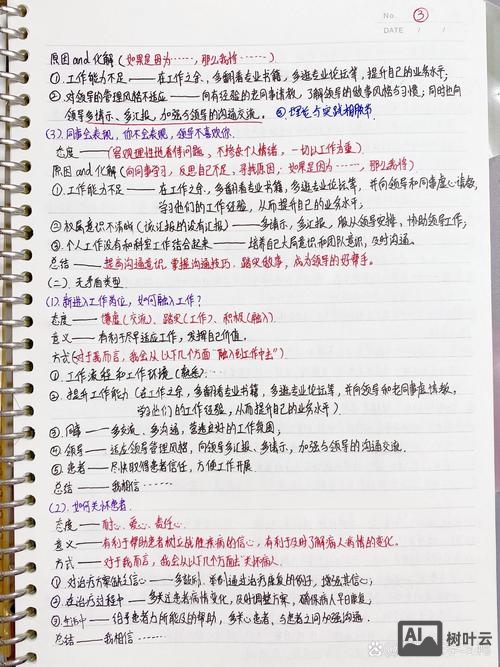 No. ③
DATE / /
原因and化解(如果是因为……,那么我将……)
①.工作能力不足——在工作之余,多翻看专业书籍,多逛专业论坛等,提升自己的业务水平;
②.对领导的管理风格不适应——向有经验的老同事请教,了解领导的做事风格与习惯;同时也向
领导多请示、多汇报,加强与领导的沟通交流。 ③理论与实践相脱节
(3).同事会表现,你不会表现,领导不喜欢你.
态度——(客观理性地看待问题,不掺杂个人情绪,一切以工作为重)
原因and化解(向同事学习,反思自己不足,寻找原因,如果是因为……,那么我将)
①.工作能力不足——在工作之余,多翻看专业书籍,多逛专业论坛等,并向领导和同事虚心请教,
学习他们的工作经验,从而提升自己的业务水平;
②.权属意识不清晰(该汇报的没有汇报)——多请示,多汇报,服从领导安排,协助领导工作;
③.个人工作没有和科室工作结合起来——培养自己大局意识和团队意识,及时沟通。
总结——提高沟通意识,掌握沟通技巧,踏实做事,成为领导的好帮手。
(二).无矛盾类型
(1).新进入工作岗位,如何融入工作?
态度——谦虚(交流)、踏实(工作)、积极(融入)
意义——有利于尽早适应工作,发挥自己价值。
方式(对于我而言,我会从以下几个方面“融入到工作中去”)
①.工作流程和工作环境(熟悉);
②.提升工作能力(在工作之余,多翻看专业书籍,多逛专业论坛等,并向领导和老同事虚心请教,
学习他们的工作经验,从而提升自己的业务水平)
③.同事——多交流、多沟通,营造良好的工作氛围,
④.领导——适应领导管理风格,向领导多汇报、多请示,加强与领导的沟通交流.
⑤.患者——尽快取得患者信任,方便工作开展.
总结——我相信……
(2).如何关怀患者.
态度——耐心、爱心、责任心.
意义——有利于帮助患者树立战胜疾病的信心,有利于及时了解病人病情的变化。
方式——对于我而言,我会从以下几个方面去“关怀病人”
①.对治疗方案缺乏信心——多鼓励、举例通过治疗康复的例子,增强其信心;
②.在治疗过程中——多关注患者病情变化,及时调整方案,确保病人早日康复;
③.生活中——给予患者力所能及的帮助,多关心患者,与患者之间加强沟通.
总结——我相信……
AI 树叶云